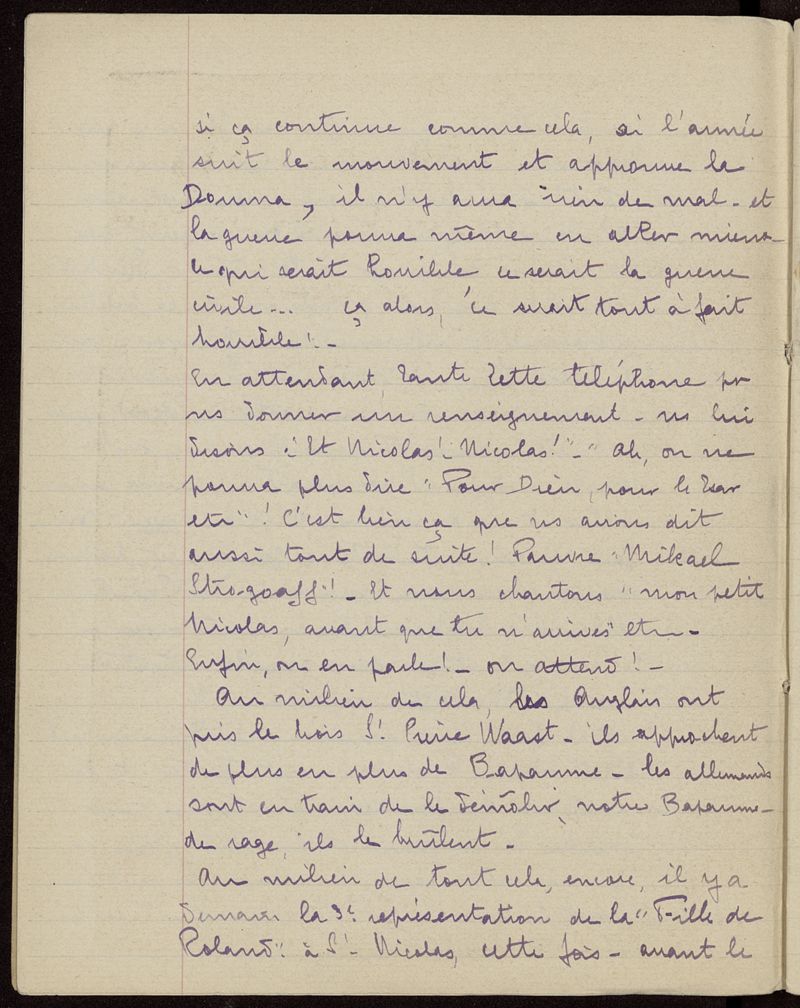 si ça continue comme cela, si l'armée
suit le mouvement et approuve la
Douma, il n'y aura rien de mal - et
la guerre pourra même en aller mieux -
ce qui serait horrible ce serait la guerre
civile... ça alors, ce serait tout à fait
horrible! -
En attendant, Tante Zette téléphone pr
ns donner un renseignement - ns lui
disons : "Et Nicolas! Nicolas!" - "Ah, on ne
pourra plus dire "Pour Dieu, pour le Tsar
etc"! C'est bien ça que ns avions dit
aussi tout de suite! Pauvre "Mikael
Strogoaff"! - Et nous chantons "mon petit
Nicolas, avant que tu n'arrives" etc -
Enfin, on en parle! - on attend! -
Au milieu de cela, les Anglais ont
pris le bois St Pierre Waast - ils approchent
de plus en plus de Bapaume - les allemands
sont en train de le démolir, notre Bapaume -
de rage, ils le brûlent -
Au milieu de tout cela, encore, il y a
demain la 3e représentation de la "Fille de
Roland" à St Nicolas, cette fois - avant le